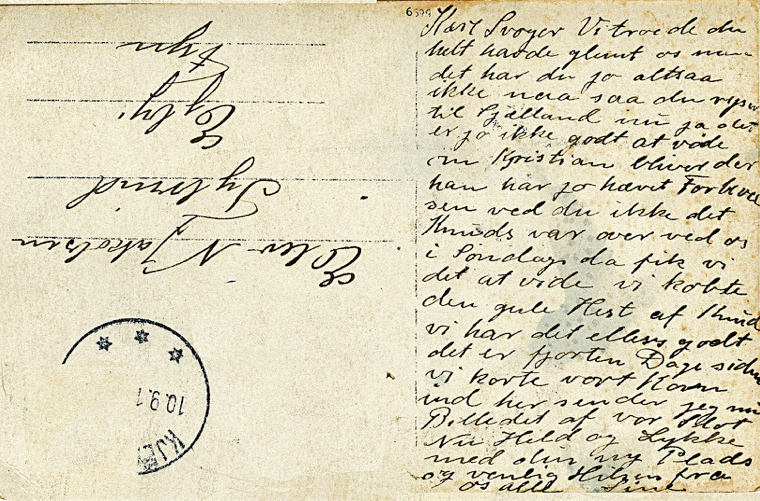 6399
Kær Svoger Vi troede du
helt havde glemt os men
det har du jo altsaa
ikke naa saa du rejser
til Sjælland nu ja det
er jo ikke godt at vide
om Kristian bliver der
han har jo hævet Forlovel
sen ved du ikke det
Knuds var over ved os
i Søndags da fik vi
det at vide vi købte
den gule Hest af Knud
vi har det ellers godt
det er fjorten Dage siden
vi kørte vort Korn
ind her sender jeg nu
Billedet af vor Slot
Nu Held og Lykke
med din ny Plads
og venlig Hilsen fra
os alle Sine
Elev N Jakobsen
Sybrind
Ejby
Fyn
10.9.1
KJE